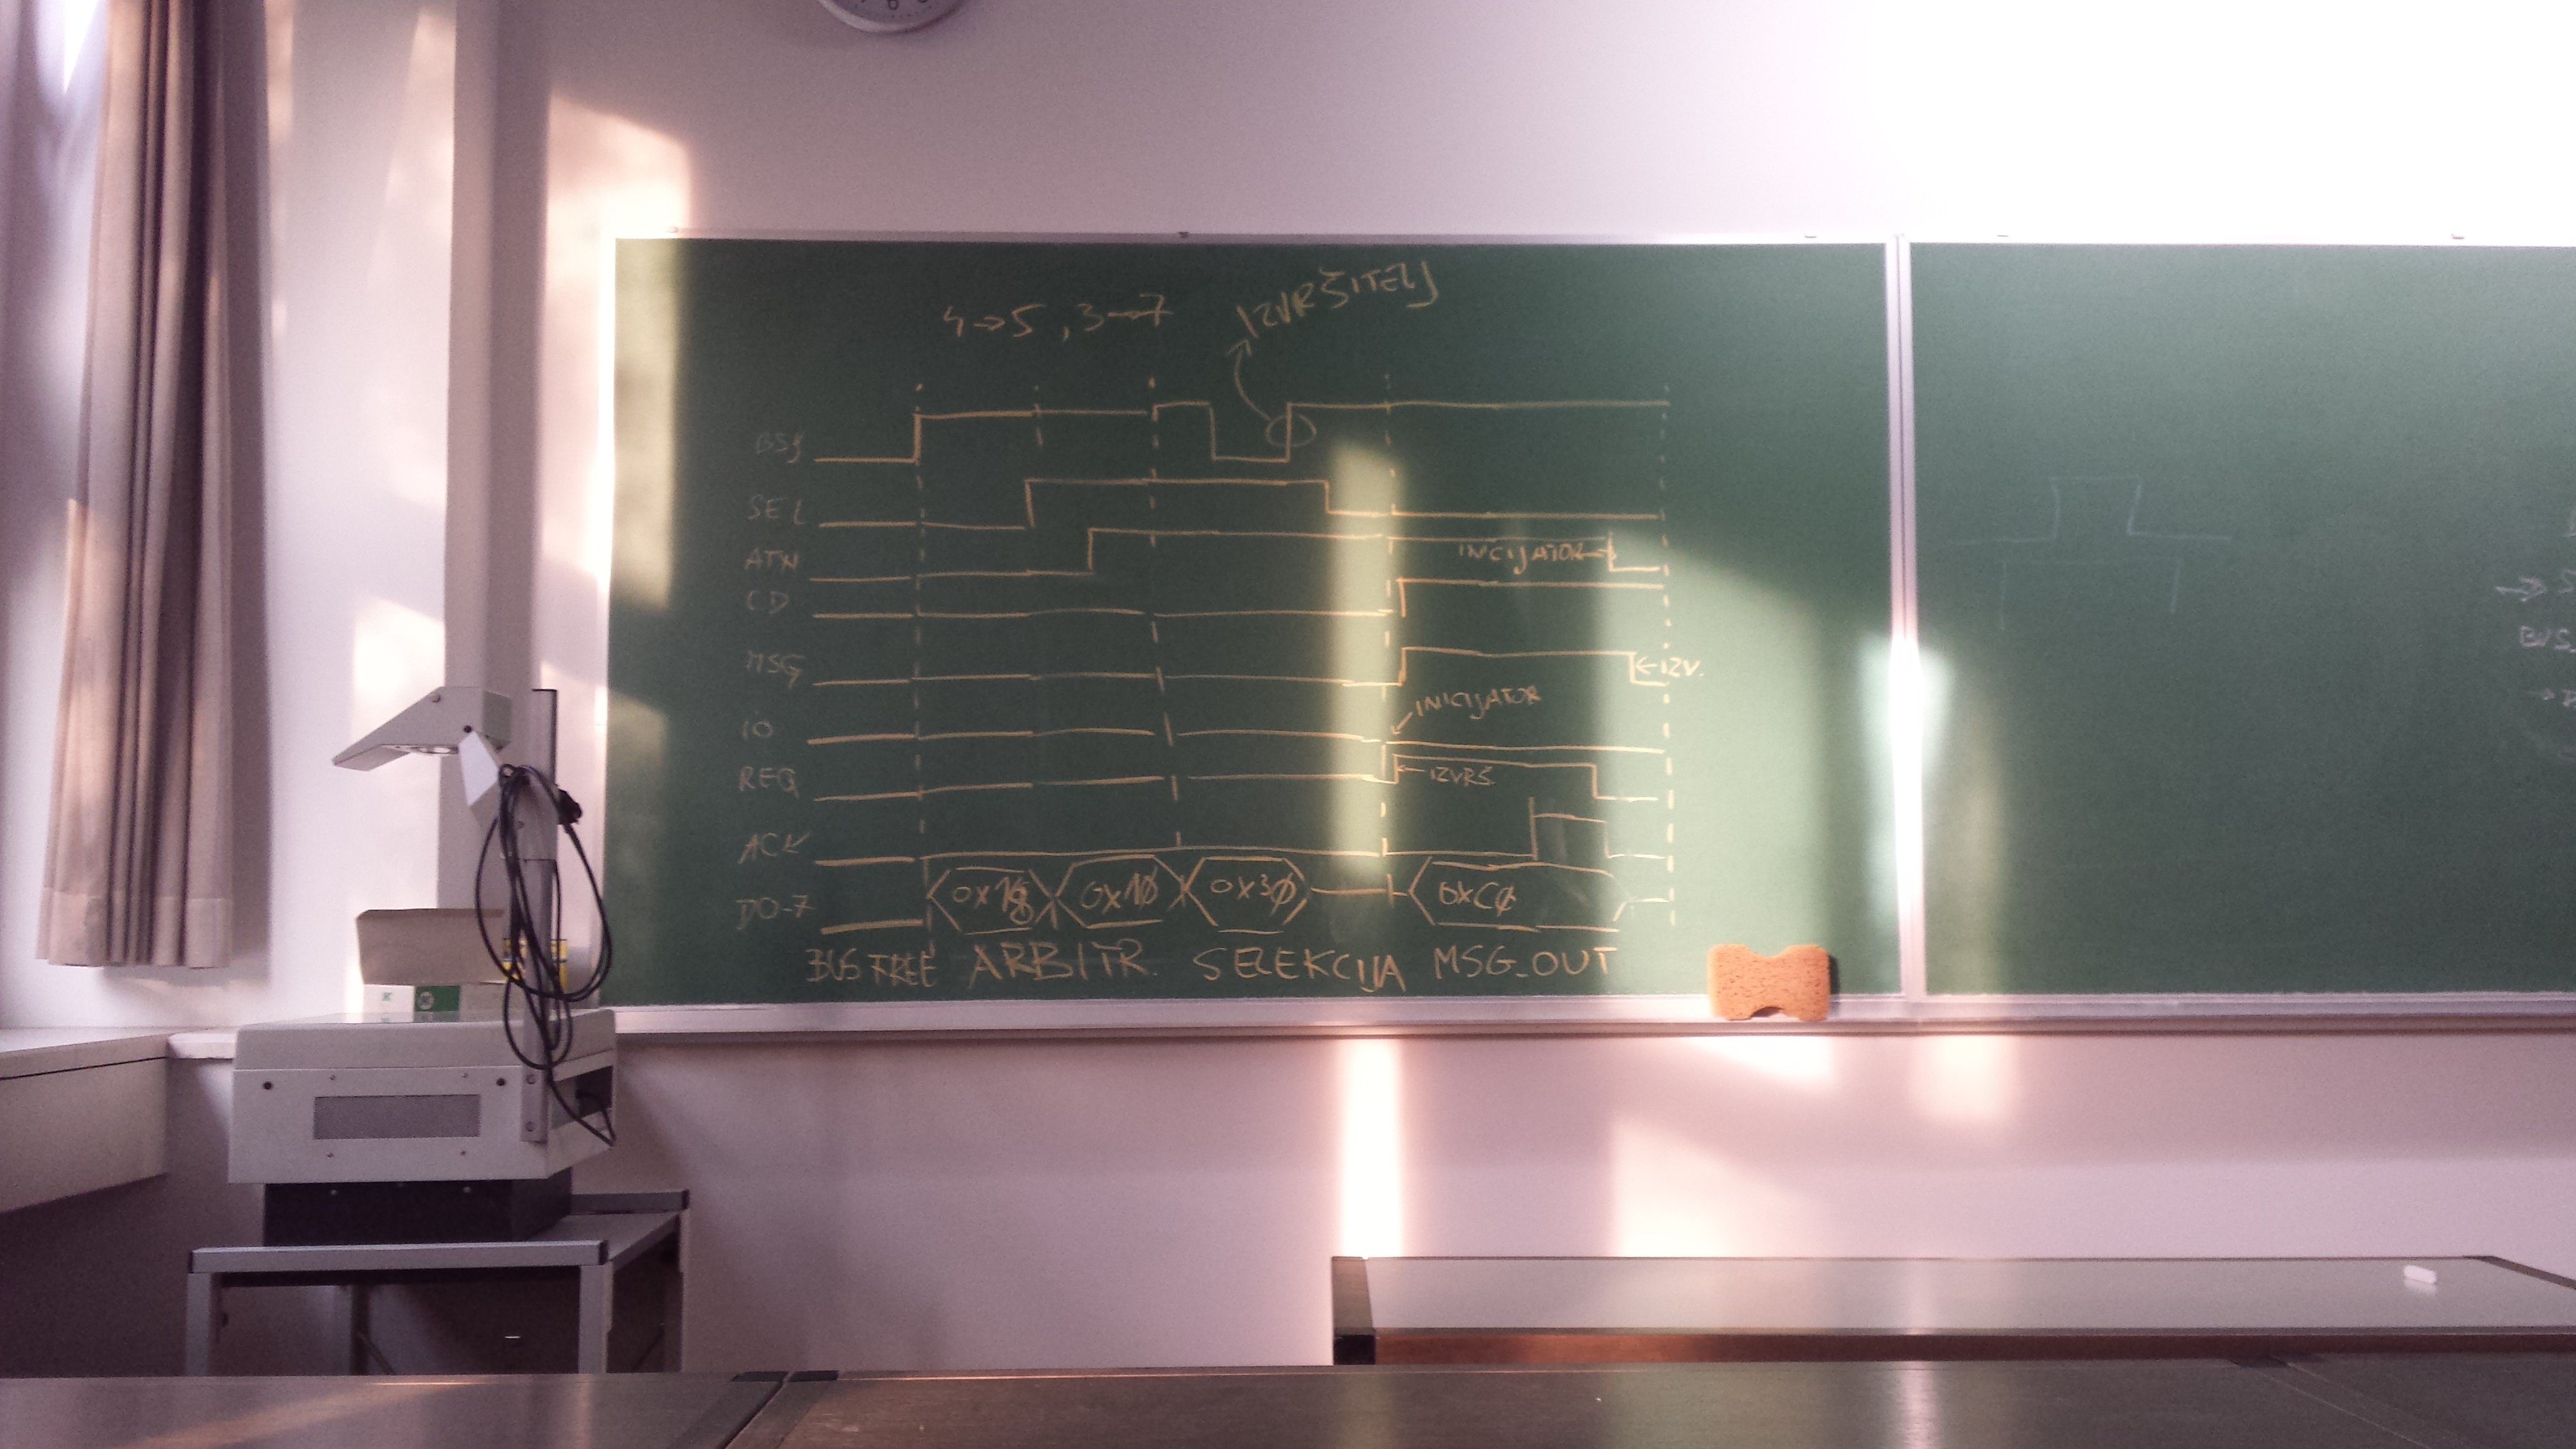 4→5, 3→7
IZVRŠITELJ
BSY
SEL
ATN
INICIJATOR→
CD
MSG
←IZV.
IO
INICIJATOR
REQ
←IZVRŠ.
ACK
D0-7
0x18
0x10
0x30
0xC0
BUS FREE ARBITR. SELEKCIJA MSG_OUT